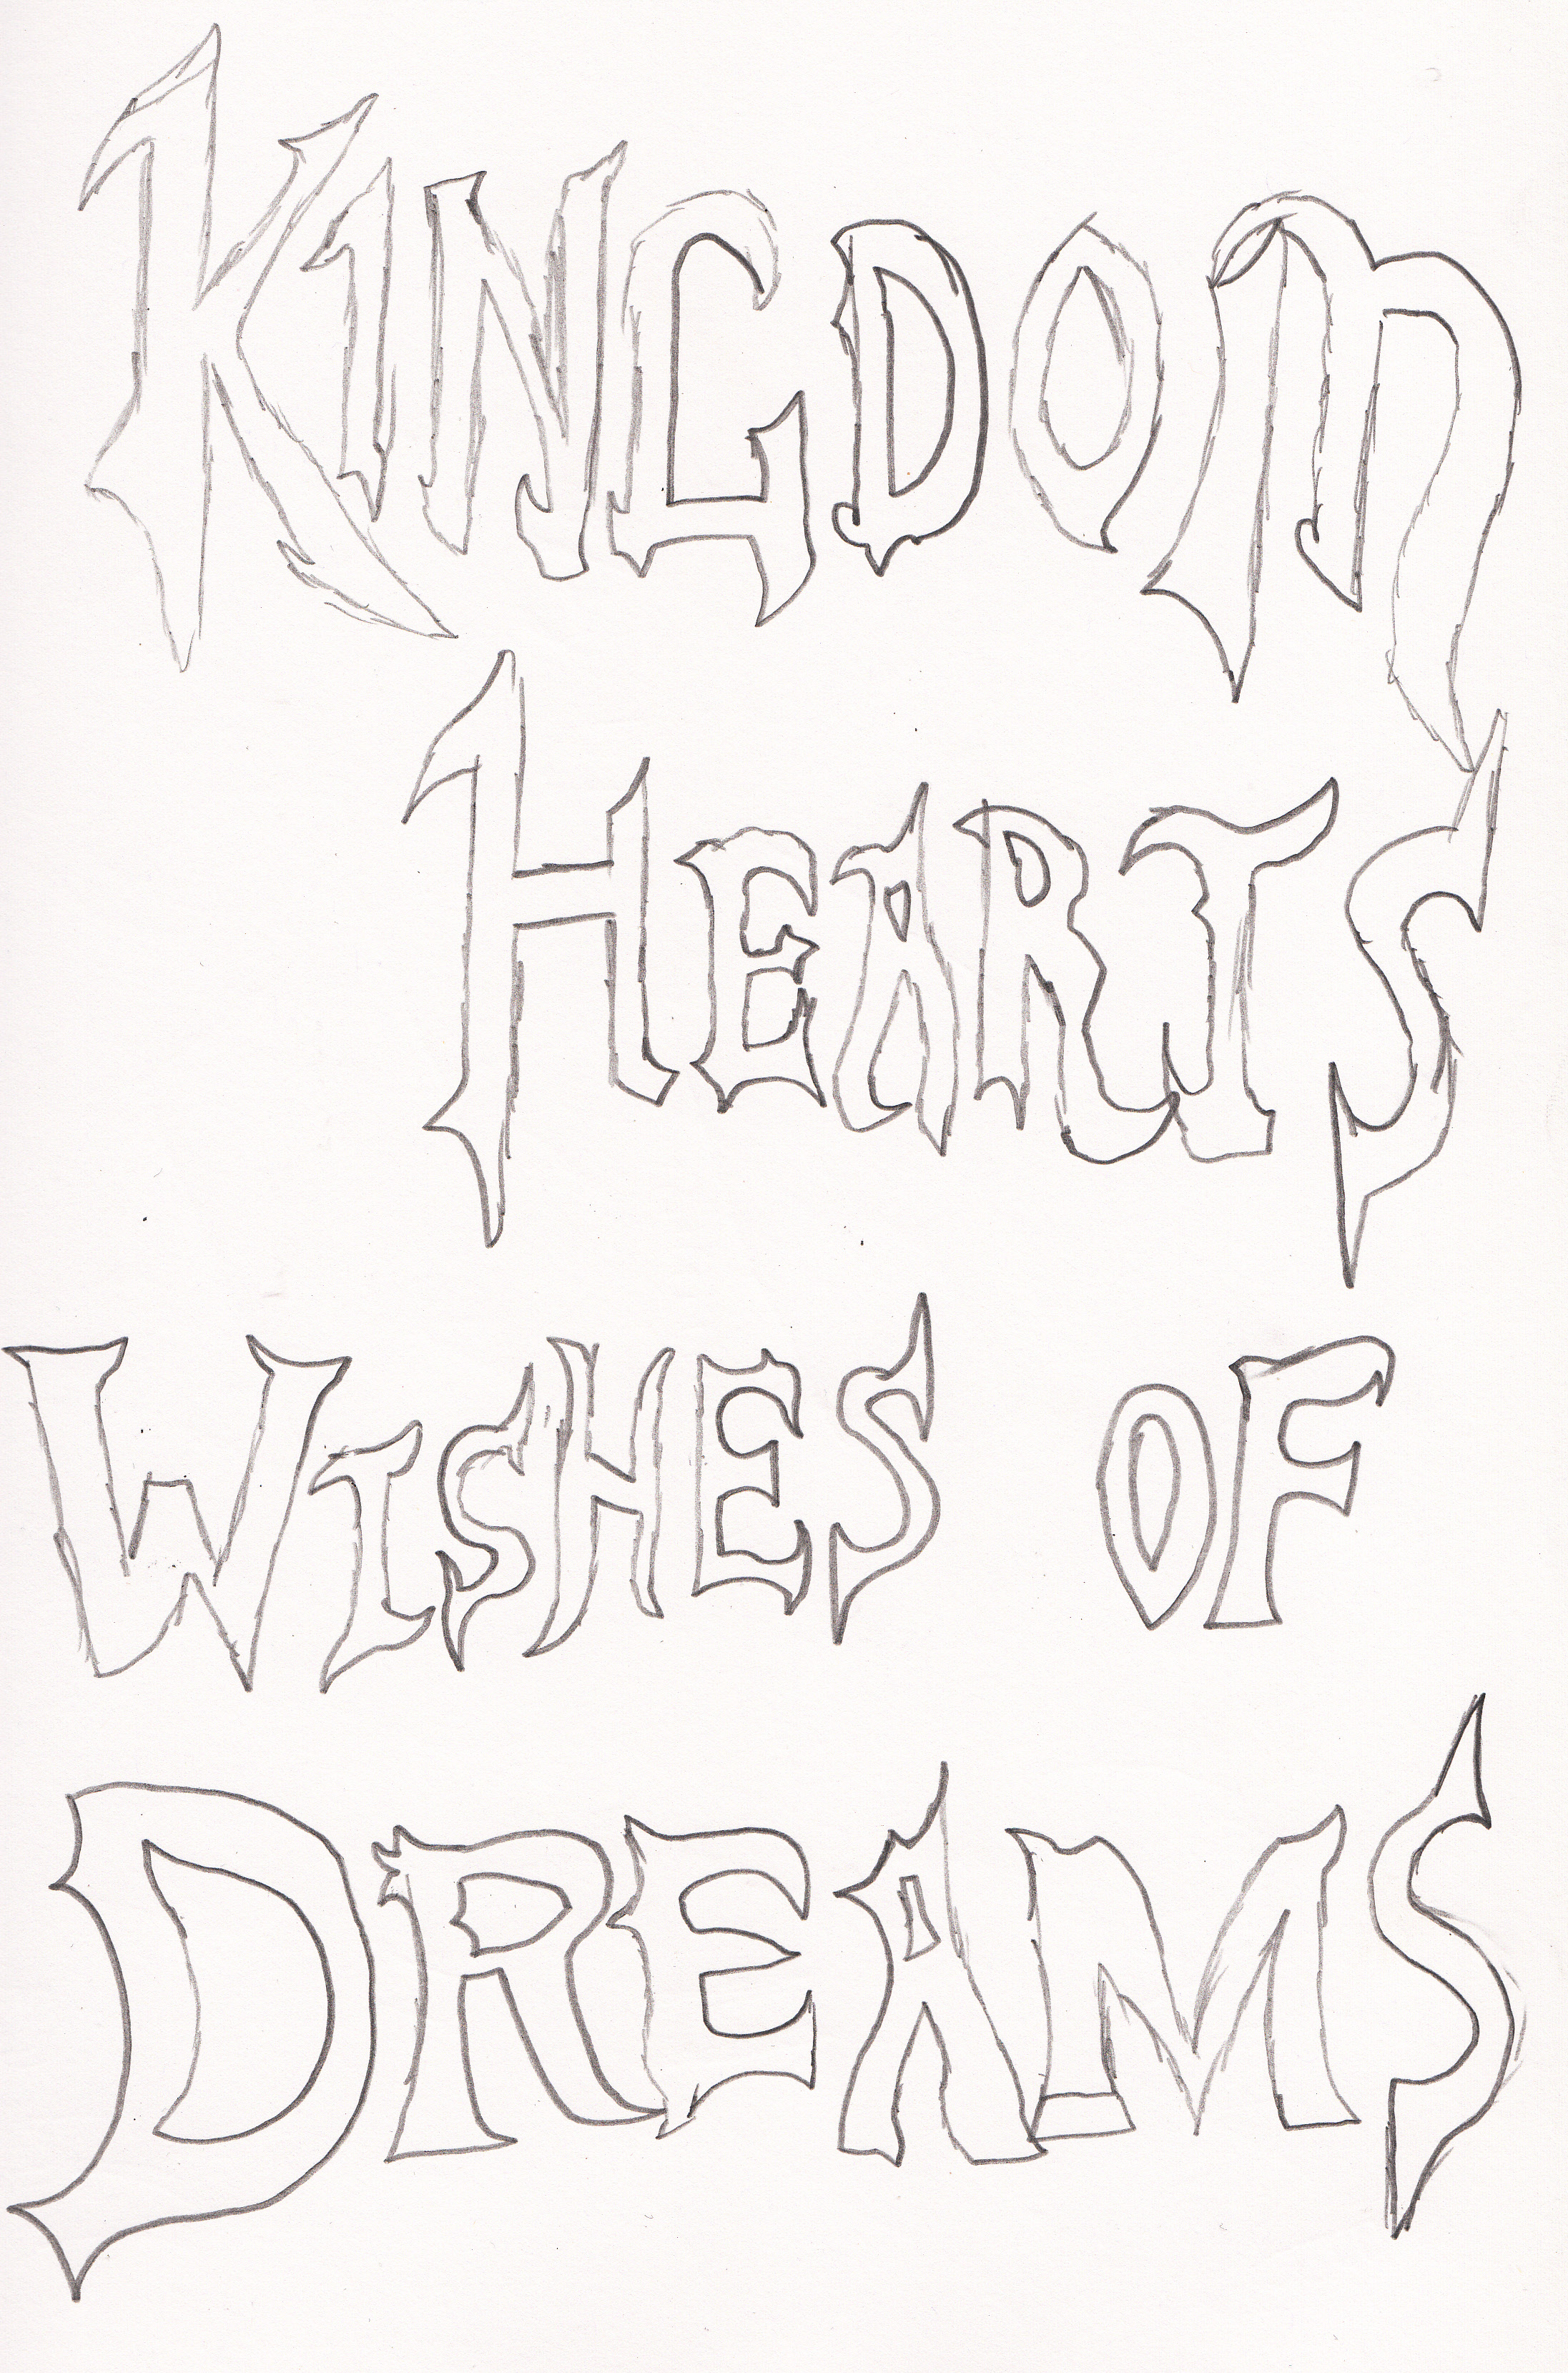 KINGDOM
HEARTS
WISHES OF
DREAMS